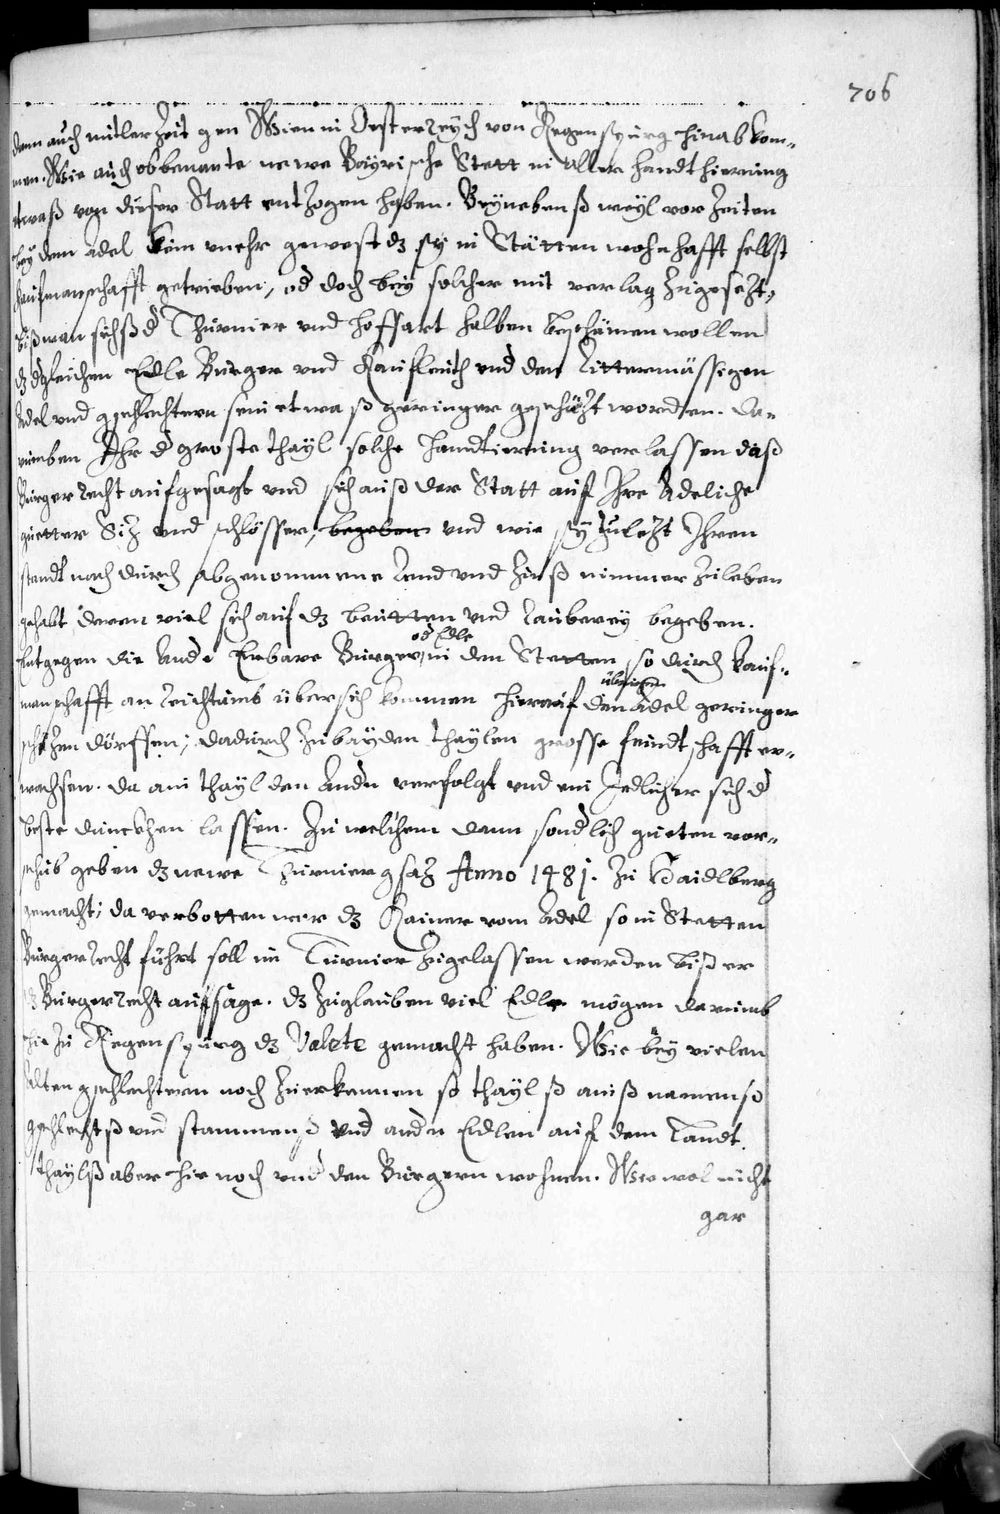 706
dann auch mitler Zeit gen Wien in Oesterreÿch von Regenspurg hinab kom-
men. Wie auch obbenante newe Bayrische Stett in aller handthierung
etwaß von dieser Statt entzogen haben. Beynebenß weyl vor Zeiten
beÿ dem Adel kein unehr gewest dz sÿ in Stätten wohnhafft selbst
kaufmanschafft getrieben, od doch beÿ solcher mit verlag zugesetzt,
biß man sichß d Thurnier und hoffart halben beschämen wollen
dz dgleichen Edle Burger und Kaufleuth und den Rittermässigen
Adel und gschlechtern seine etwaß geringer geschätzt worden. Da-
rumben Ihr d groste thayl solche handtierung verlassen daß
Burgerrecht aufgesagt und sich auß der Statt auf Ihre Adeliche
guetter Siz und schlösser, begeben und wie sÿ zulezt Ihren
standt nach durch abgenommene Rend und Zinß nimmer zuleben
gehabt, deren viel sich auf dz beutten und Rauberey begeben.
Entgegen die Ande Erbare Burger, od Edle in den Stetten, so durch kauf-
manschafft an reichtumb übersich kommen hierauf den übrigen Adel geringer
schäzen dörffen; dadurch zu bayden thaylen grosse feindtschafft er-
wachsen. Da ain thayl den andn verfolgt und ein Jedlicher sich d
beste dunckhen lassen. Zu welchem dann sondlich gueten vor-
schub geben dz newe Thurniergsaz Anno 1481. zu Haidlberg
gemacht; da verbotten wer dz Kainer vom Adel so in Stetten
Burgerrecht führt soll im Turnier zugelassen werden biß er
dz Burgerrecht aufsage. dz zuglauben viel Edle mögen darumb
hie zu Regenspurg dz Valete gemacht haben. Wie beÿ vielen
Alten gschlechtern noch zuerkennen so thaylß ainß namenß
gschlechtß und stammenß und andn Edlen auf dem Landt
thaylß aber hie noch und den Burgern wohnen. Wiewol nicht
gar